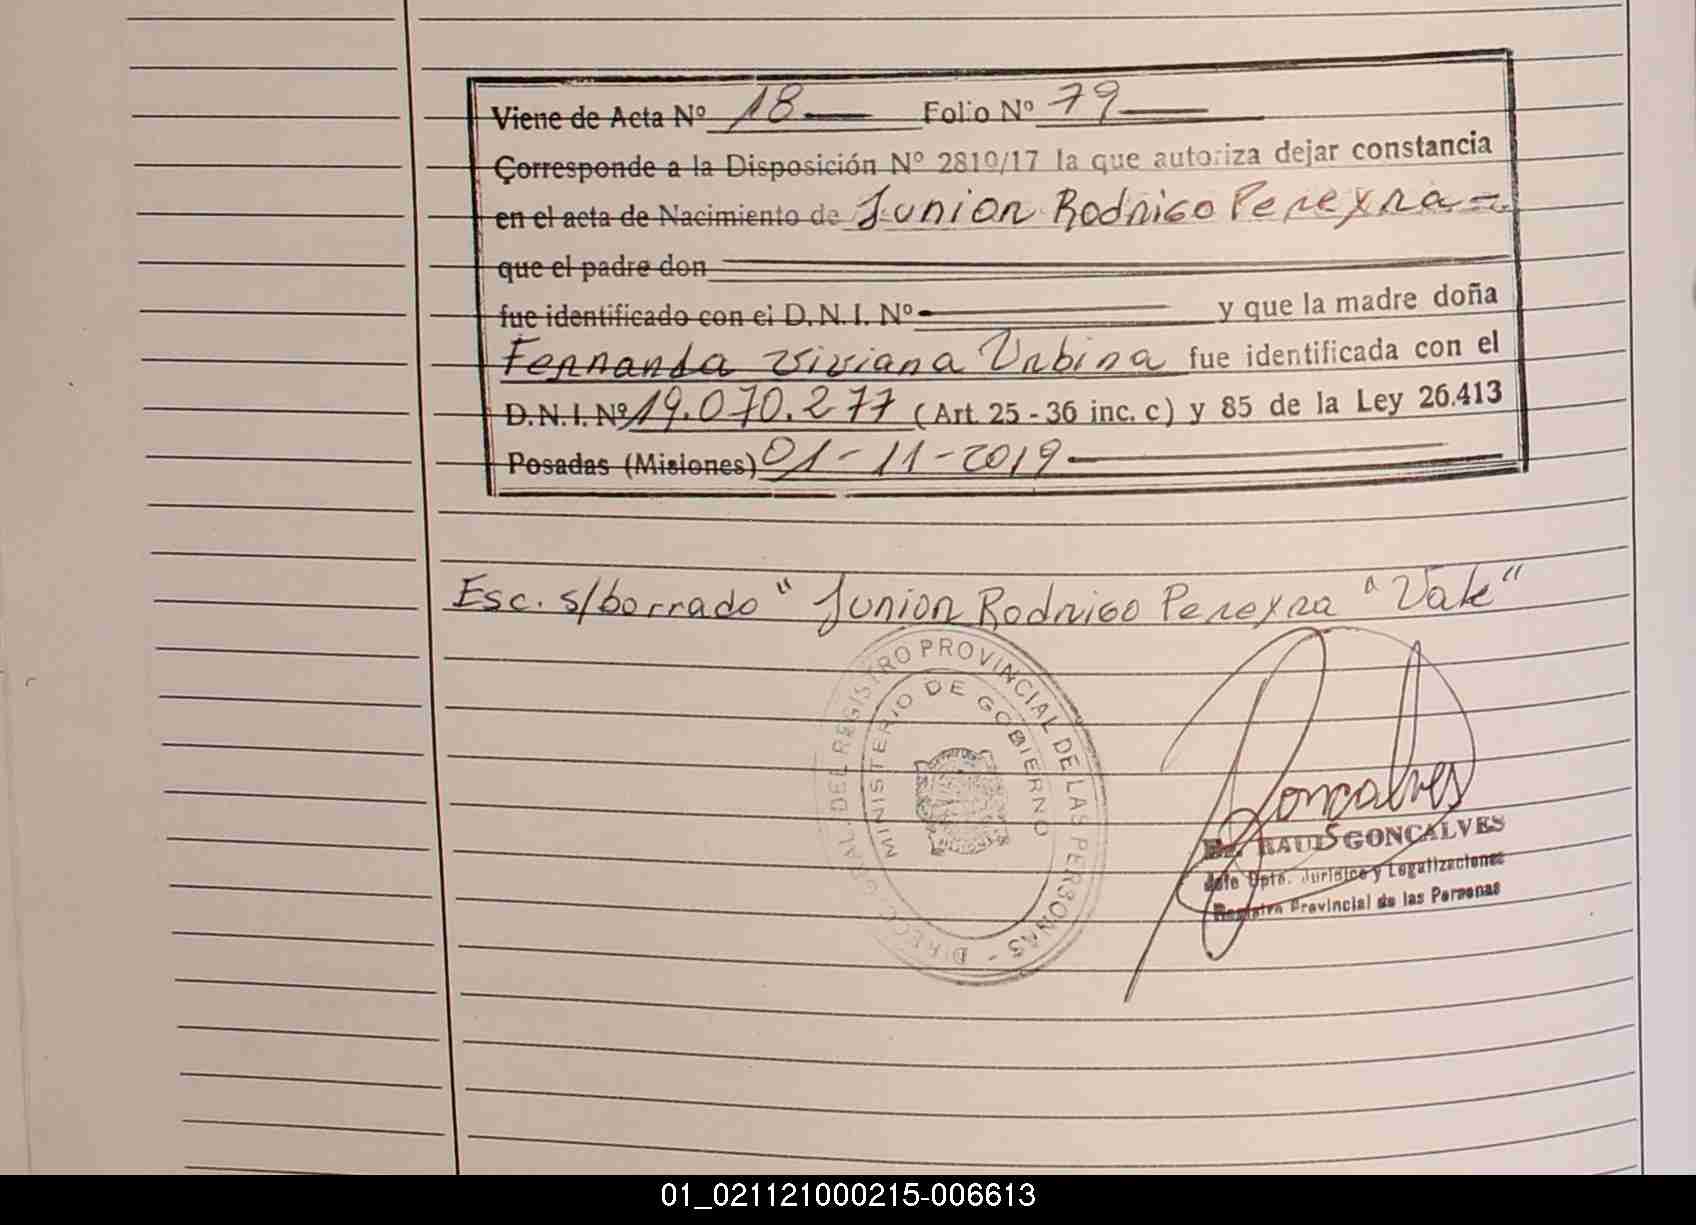 Viene de Acta Nº 18 Folio Nº 79
Corresponde a la Disposición Nº 2810/17 la que autoriza dejar constancia
en el acta de Nacimiento de Junior Rodrigo Pereyra
que el padre don
fue identificado con el D.N.I. Nº y que la madre doña
Fernanda Viviana Urbina fue identificada con el
D.N.I. Nº 19.070.277 (Art. 25 - 36 inc. c) y 85 de la Ley 26.413
Posadas (Misiones) 01-11-2019
Esc. s/borrado "Junior Rodrigo Pereyra "Vale"
DIRECC. GRAL. DEL REGISTRO PROVINCIAL DE LAS PERSONAS -
MINISTERIO DE GOBIERNO
Goncalves
RAUL GONCALVES
Jefe Dpto. Jurídico y Legalizaciones
Registro Provincial de las Personas
01_021121000215-006613